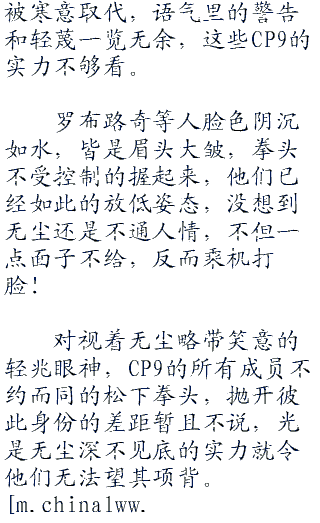 被寒意取代，语气里的警告
和轻蔑一览无余，这些CP9的
实力不够看。
罗布路奇等人脸色阴沉
如水，皆是眉头大皱，拳头
不受控制的握起来，他们已
经如此的放低姿态，没想到
无尘还是不通人情，不但一
点面子不给，反而乘机打
脸！
对视着无尘略带笑意的
轻兆眼神，CP9的所有成员不
约而同的松下拳头，抛开彼
此身份的差距暂且不说，光
是无尘深不见底的实力就令
他们无法望其项背。
[m.china1ww.